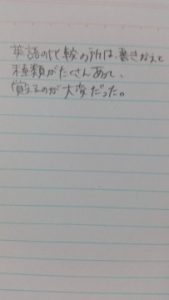 英語の比較の所は、書きかえも
種類がたくさんあって、
覚えるのが大変だった。